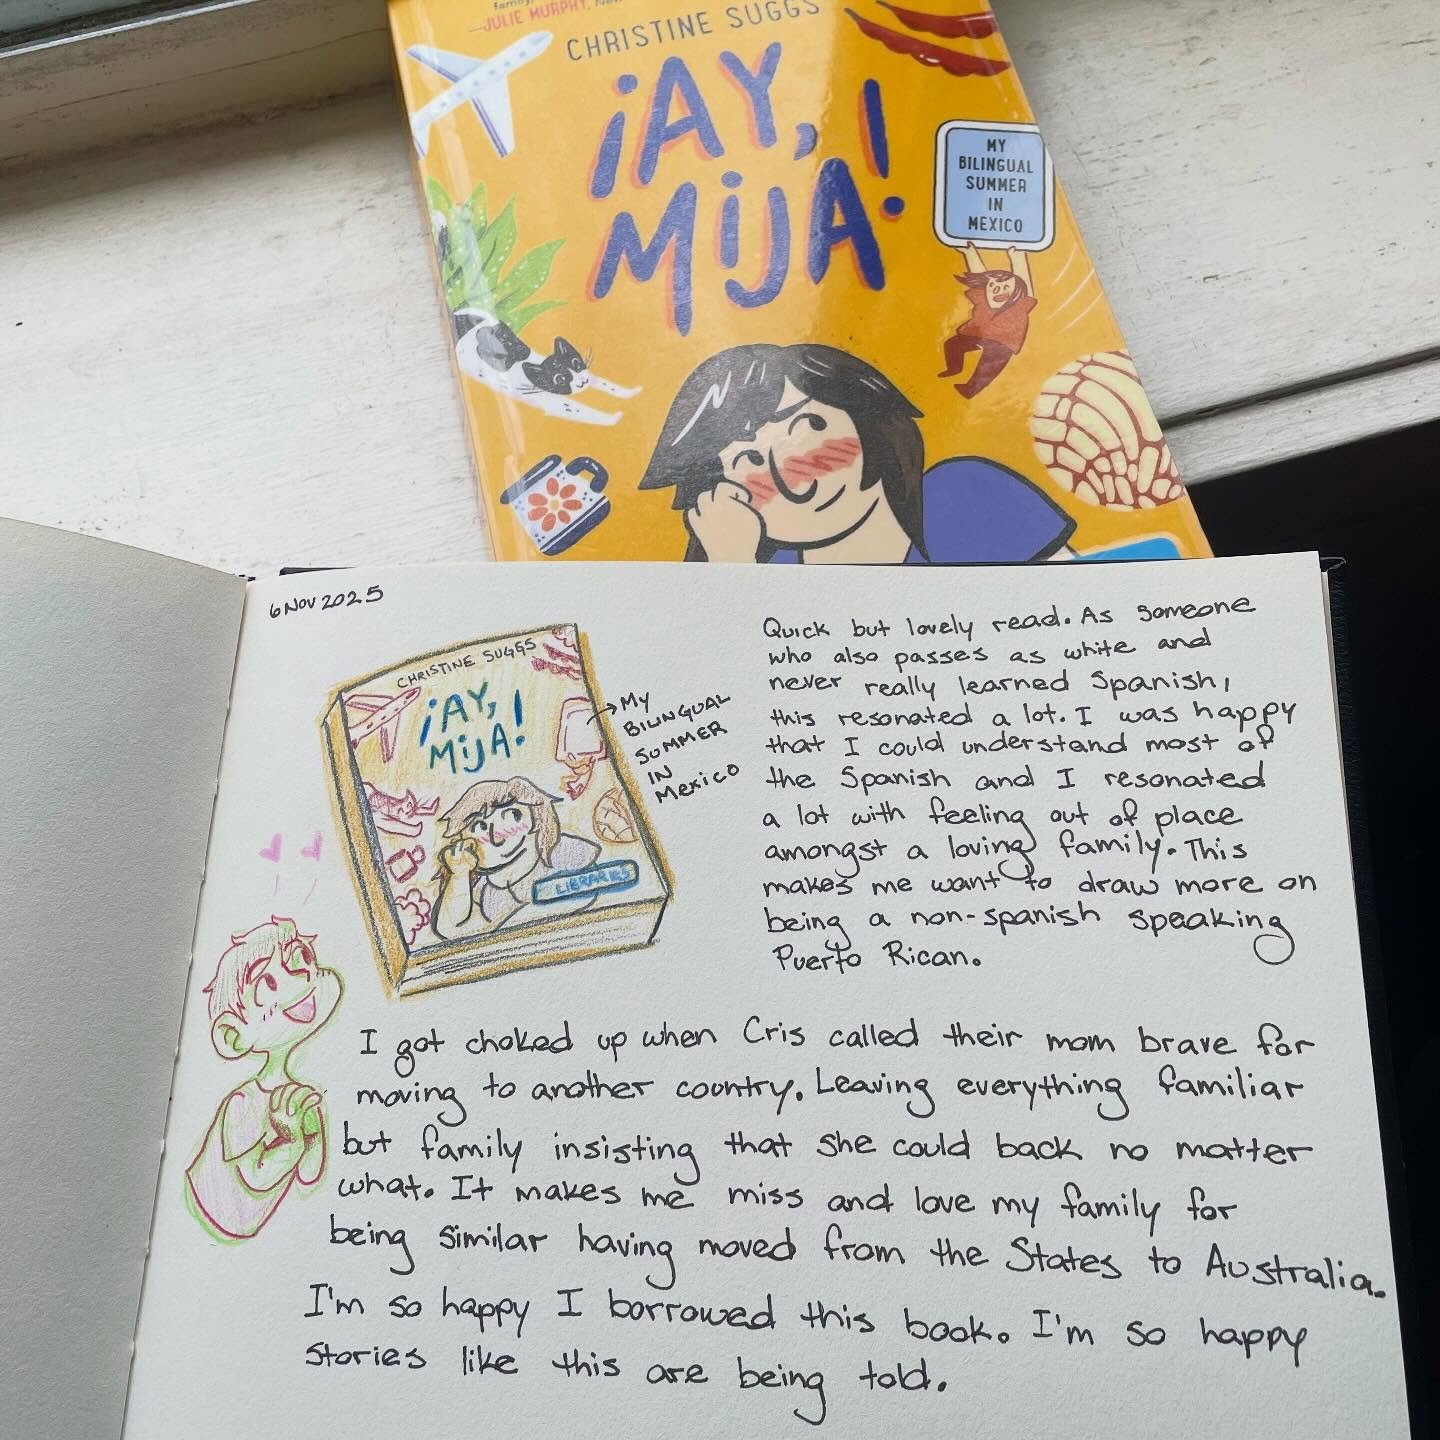 —JULIE MURPHY,
CHRISTINE SUGGS
¡AY,
MIJA!
MY
BILINGUAL
SUMMER
IN
MEXICO
6 NOV 2025
CHRISTINE SUGGS
¡AY,
MIJA!
LIBRARIES
My
BILINGUAL
SUMMER
IN
MEXICO
Quick but lovely read. As someone
who also passes as white and
never really learned Spanish,
this resonated a lot. I was happy
that I could understand most of
the Spanish and I resonated
a lot with feeling out of place
amongst a loving family. This
makes me want to draw more on
being a non-spanish speaking
Puerto Rican.
I got choked up when Cris called their mom brave for
moving to another country. Leaving everything familiar
but family insisting that she could back no matter
what. It makes me miss and love my family for
being similar having moved from the States to Australia.
I'm so happy I borrowed this book. I'm so happy
stories like this are being told.